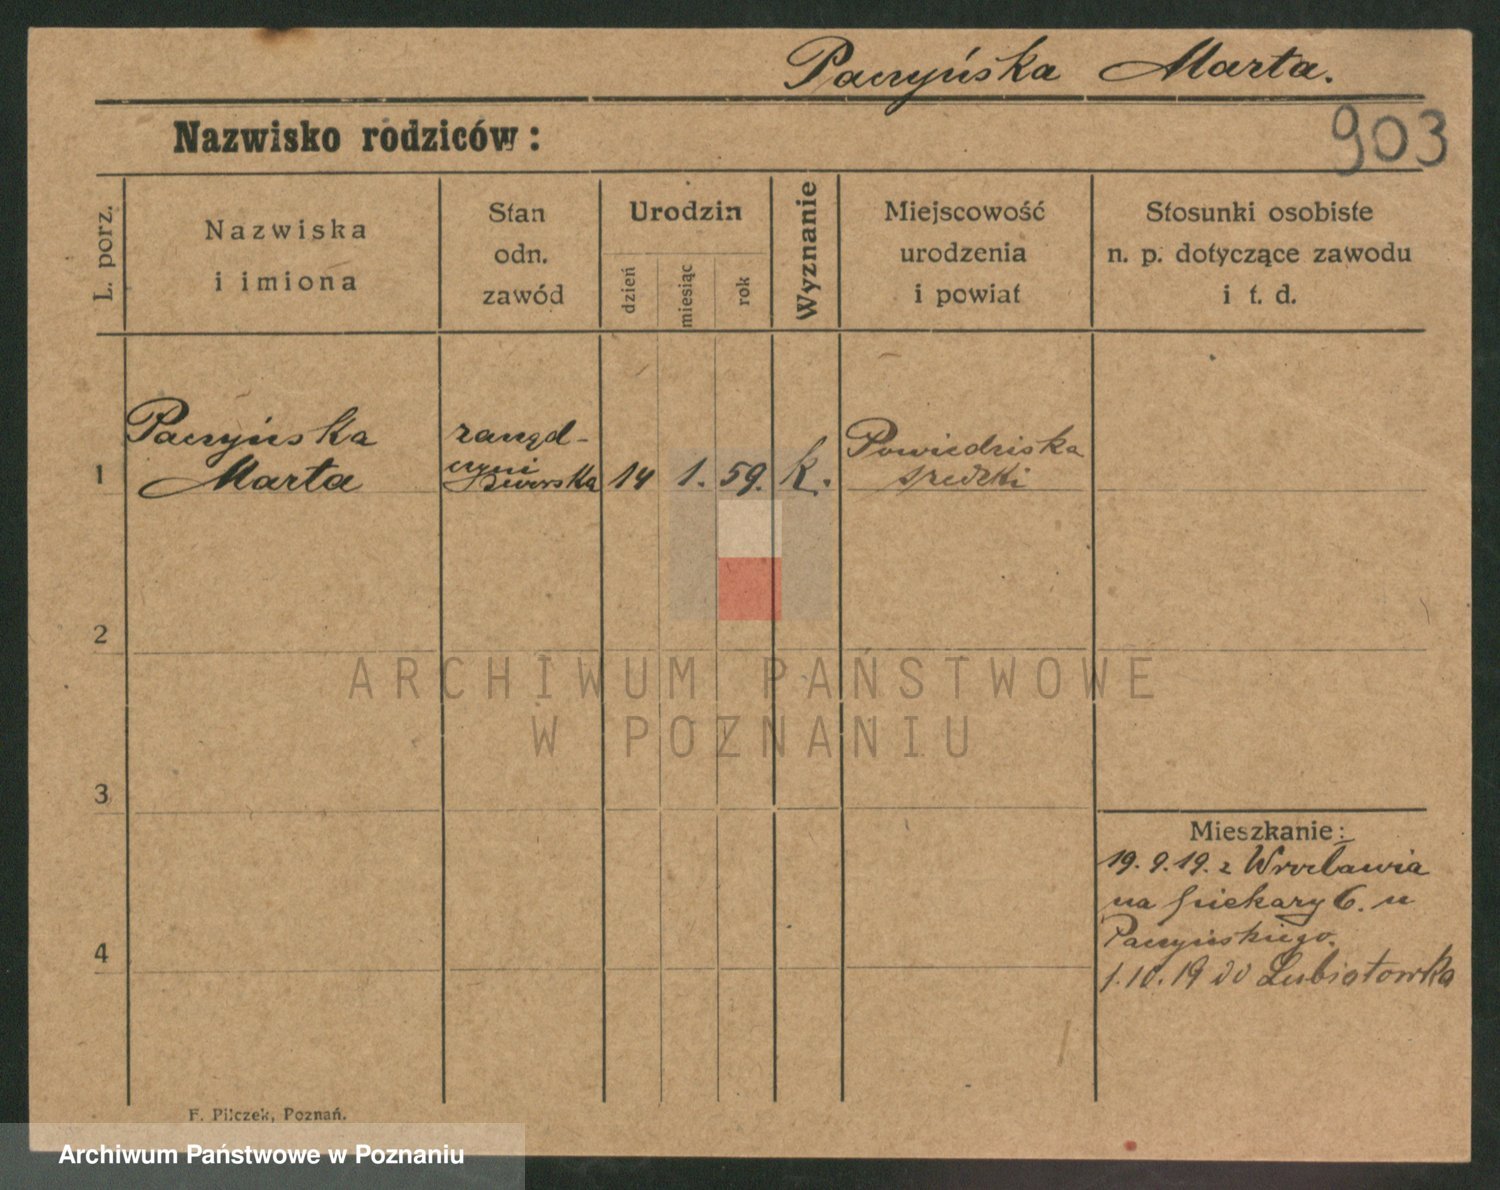 Paczyńska Marta.
903
Nazwisko rodziców:
L. porz.
Nazwiska
i imiona
Stan
odn.
zawód
Urodzin
dzień
miesiąc
rok
Wyznanie
Miejscowość
urodzenia
i powiat
Stosunki osobiste
n. p. dotyczące zawodu
i t. d.
1
Paczyńska
Marta
14
1.
59.
k.
2
ARCHIWUM PAŃSTWOWE
W POZNANIU
3
Mieszkanie:
19. 9. 19. z Wrocławia
na Piekary 6. u
Paczyńskiego.
1.10.19 do Lubiatowka
4
F. Pilczek, Poznań.
Archiwum Państwowe w Poznaniu